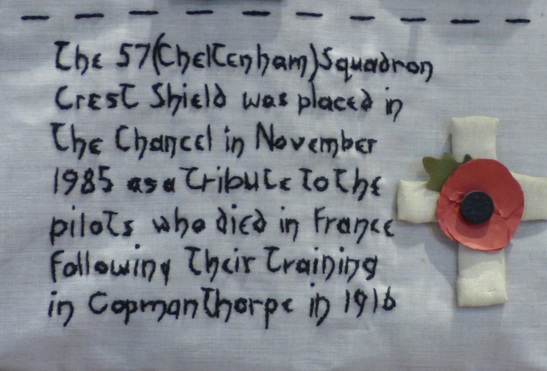 The 57(Cheltenham)Squadron
Crest Shield was placed in
the Chancel in November
1985 as a tribute to the
pilots who died in France
following their training
in Copmanthorpe in 1916